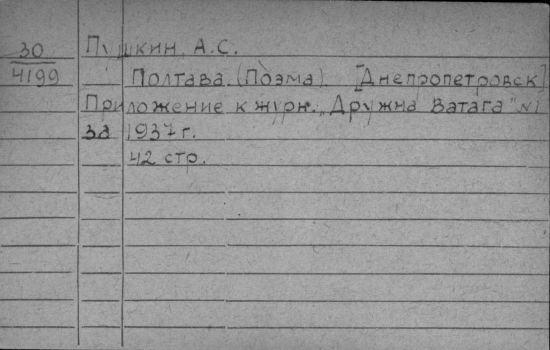 30 Пушкин, А.С.
4199 Полтава (Поэма) [Днепропетровск]
Приложение к журн. „Дружна Ватага" №1
за 1937 г.
42 стр.